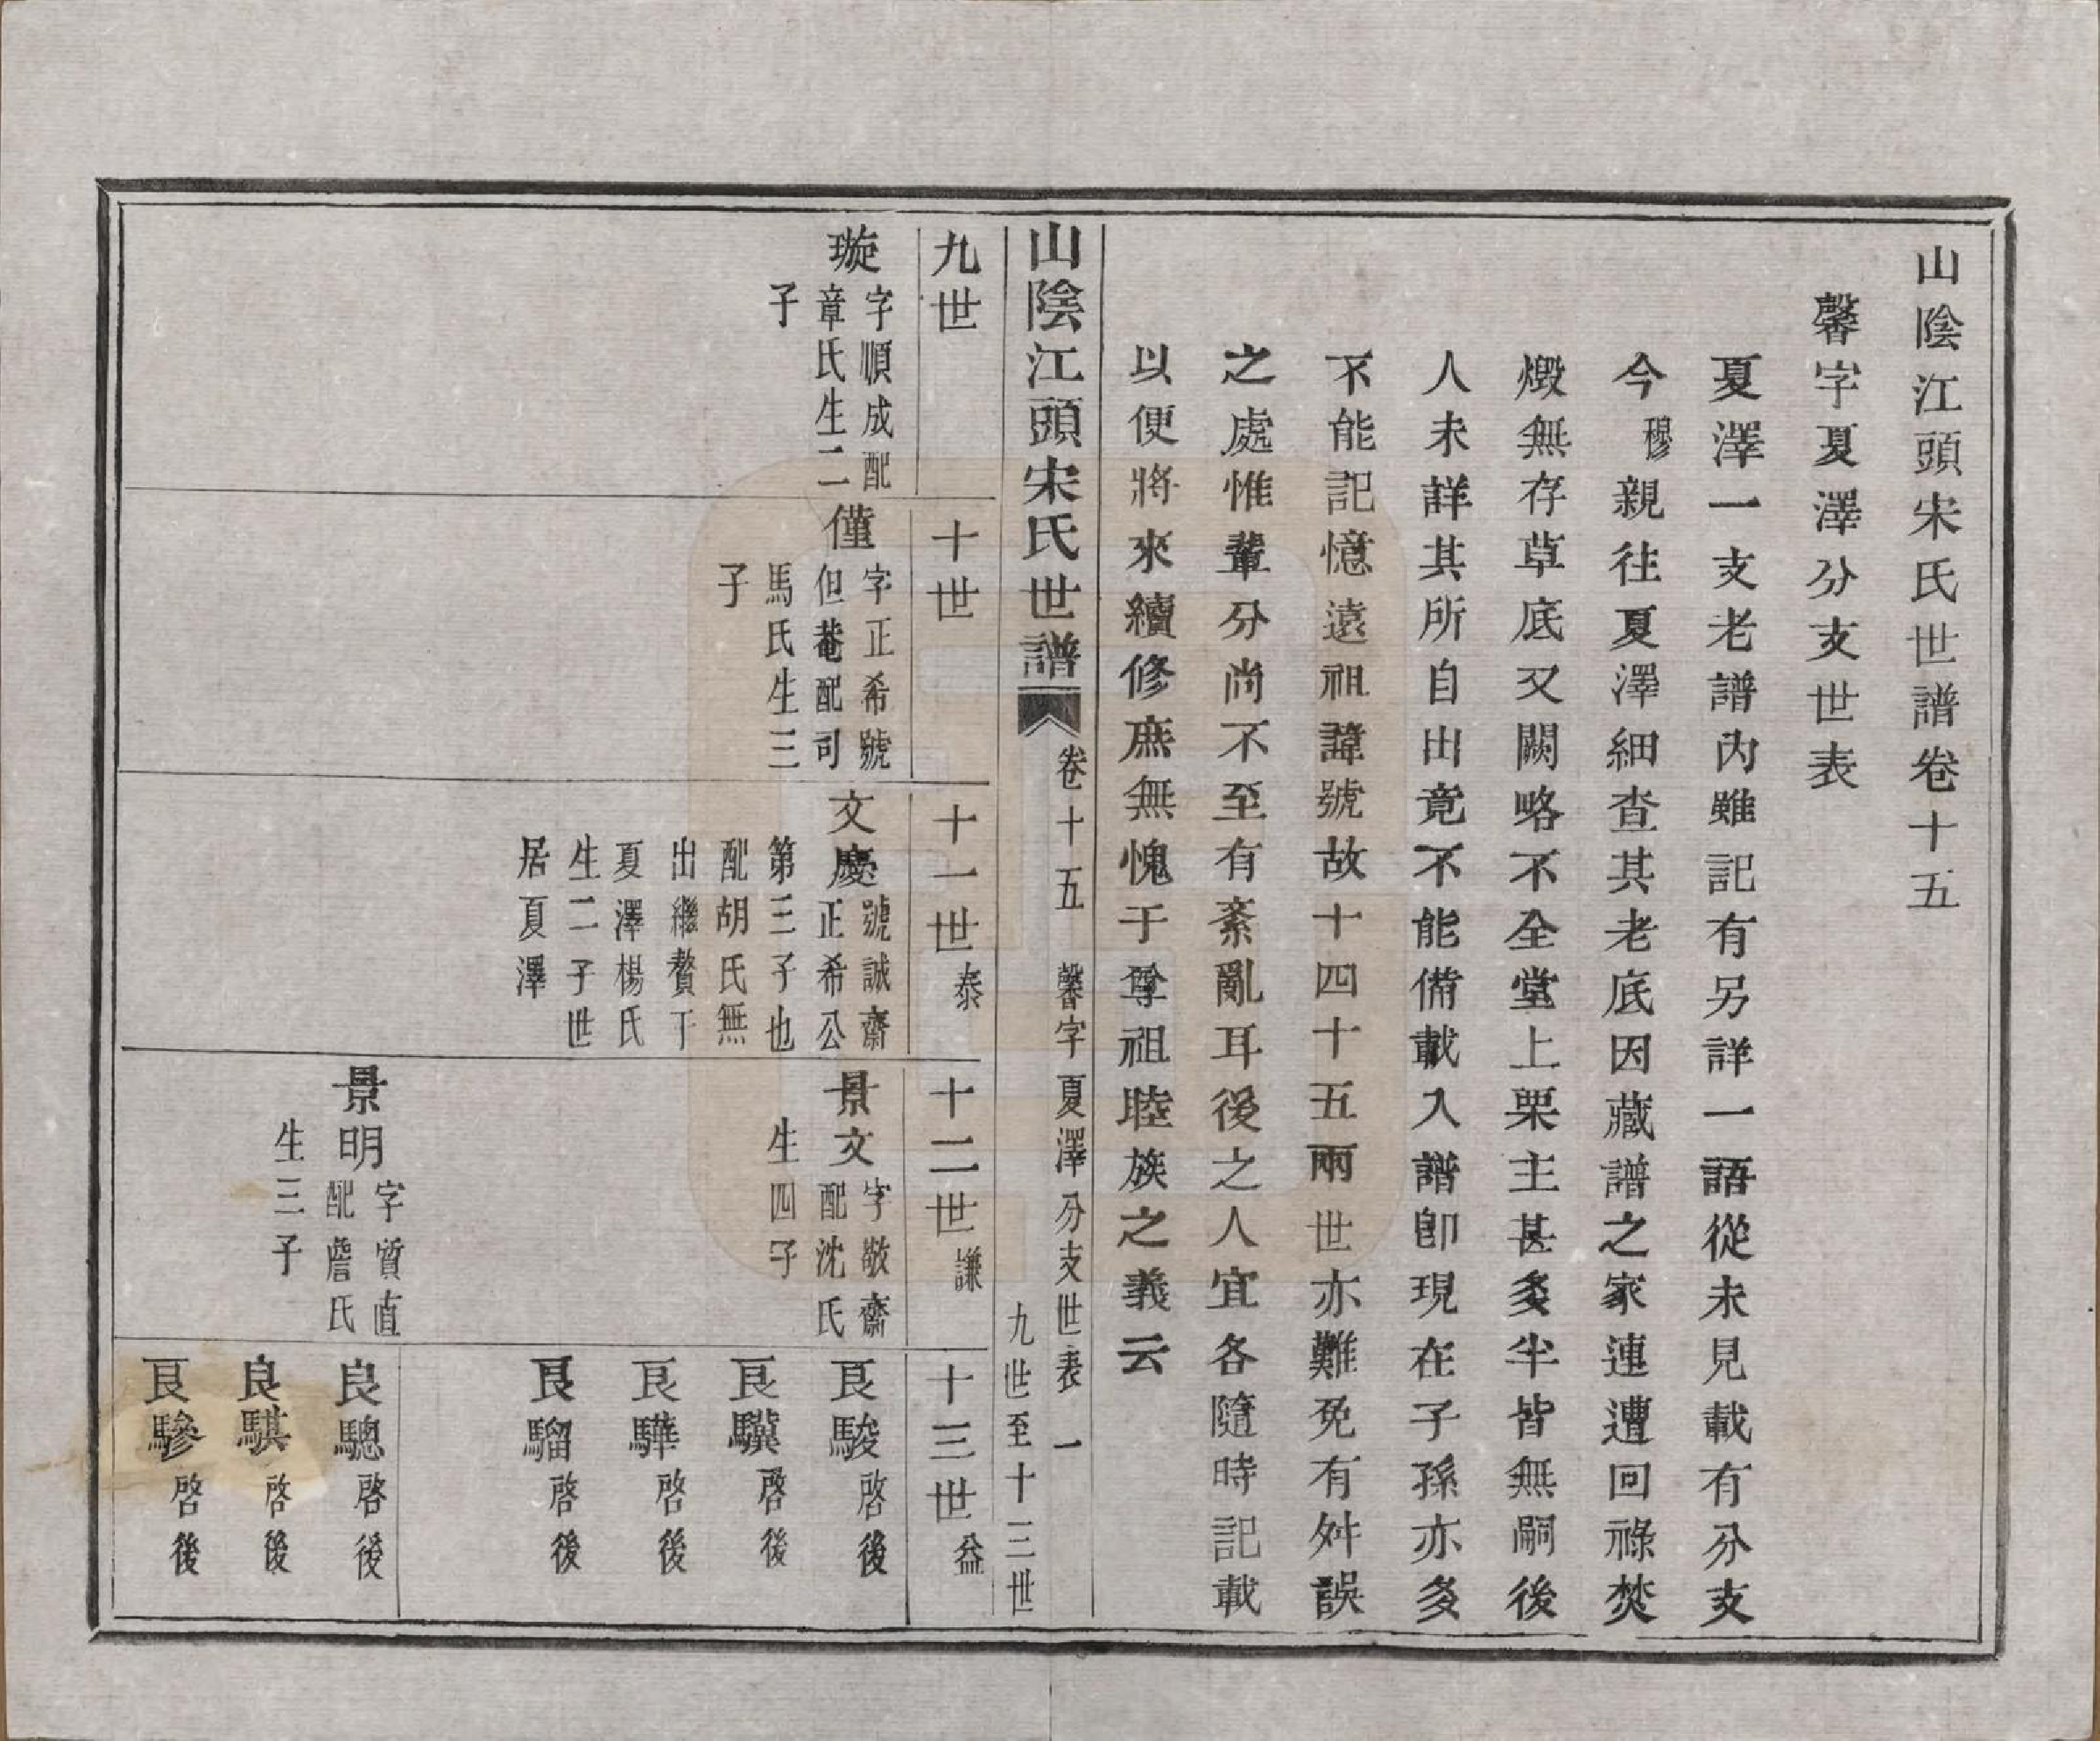 山陰江頭宋氏世譜卷十五
馨字夏澤分支世表
夏澤一支老譜內雖記有另詳一語從未見載有分支
今穆親往夏澤細查其老底因藏譜之家連遭回祿焚
燬無存草底又闕略不全堂上栗主甚多半皆無嗣後
人未詳其所自出竟不能備載入譜卽現在子孫亦多
不能記憶遠祖諱號故十四十五兩世亦難免有舛誤
之處惟輩分尚不至有紊亂耳後之人宜各隨時記載
以便將來續修庶無愧于尊祖睦族之義云
山陰江頭宋氏世譜
卷十五 馨字夏澤分支世表 一
九世至十三世
九世
璇
字順成配
章氏生二
子
十世
僅
字正希號
但菴配司
馬氏生三
子
十一世泰
文慶
號誠齋
正希公
第三子也
配胡氏無
出繼贅于
夏澤楊氏
生二子世
居夏澤
十二世謙
景文
字敬齋
配沈氏
生四子
景明
字質直
配詹氏
生三子
十三世益
良駿啓後
良驥啓後
良驊啓後
良騮啓後
良驄啓後
良騏啓後
良驂啓後